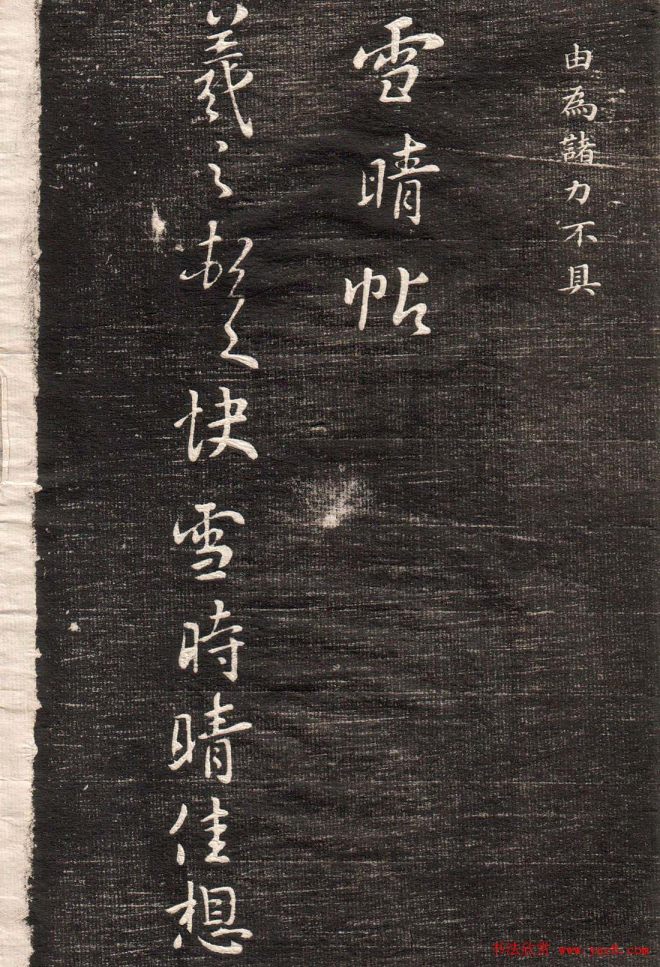 由為諸力不具
雪晴帖
羲之頓首快雪時晴佳想
书法欣赏 www.yac8.com